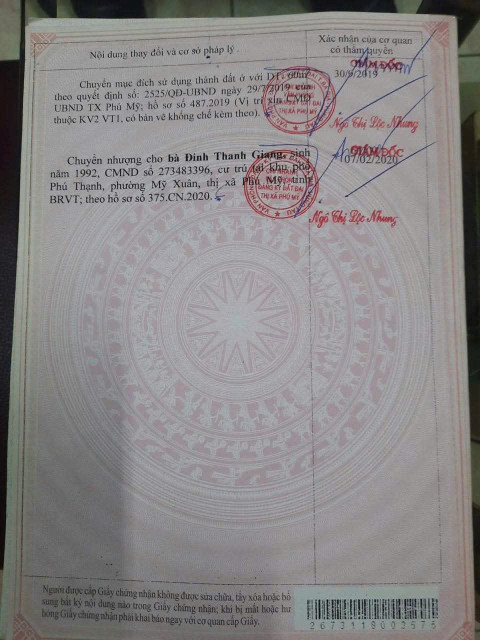 Nội dung thay đổi và cơ sở pháp lý
Xác nhận của cơ quan
có thẩm quyền
Chuyển mục đích sử dụng thành đất ở với DT
theo quyết định số: 2525/QĐ-UBND ngày 29/7/2019 của
UBND TX Phú Mỹ; hồ sơ số 487.2019 (Vị trí xin CMĐ
thuộc KV2 VT1, có bản vẽ không chế kèm theo).
30/9/2019
GIÁM ĐỐC
ĐĂNG KÝ ĐẤT ĐAI
THỊ XÃ PHÚ MỸ
Ngô Thị Lộc Nhung
Chuyển nhượng cho bà Đinh Thanh Giang, sinh
năm 1992, CMND số 273483396, cư trú tại khu phố
Phú Thạnh, phường Mỹ Xuân, thị xã Phú Mỹ, tỉnh
BRVT; theo hồ sơ số 375.CN.2020.
07/02/2020
CHI NHÁNH
ĐĂNG KÝ ĐẤT ĐAI
THỊ XÃ PHÚ MỸ
Ngô Thị Lộc Nhung
Người được cấp Giấy chứng nhận không được sửa chữa, tẩy xóa hoặc bổ
sung bất kỳ nội dung nào trong Giấy chứng nhận; khi bị mất hoặc hư
hỏng Giấy chứng nhận phải khai báo ngay với cơ quan cấp Giấy.
267311800 2575